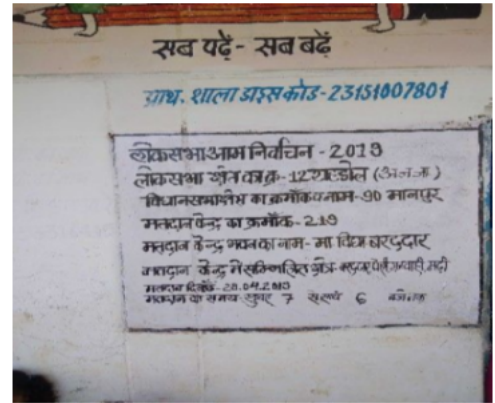 सब पढ़ें - सब बढ़ें
प्राथ. शाला डाइस कोड - 23151007801
लोकसभा आम निर्वाचन - 2019
लोकसभा क्षेत्र का क्र. - 12 शहडोल (अ.ज.जा)
विधानसभा क्षेत्र का क्रमांक व नाम - 90 मानपुर
मतदान केन्द्र का क्रमांक - 219
मतदान केन्द्र भवन का नाम - मा विद्या बरदढार
मतदान केन्द्र में सम्मिलित क्षेत्र
मतदान दिनांक - 29.04.2019
मतदान का समय सुबह 7 से सायं 6 बजे तक